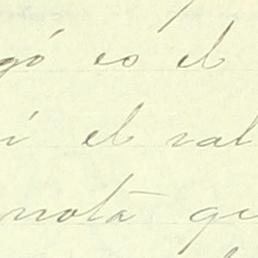 gó es el
í el val
nota qu